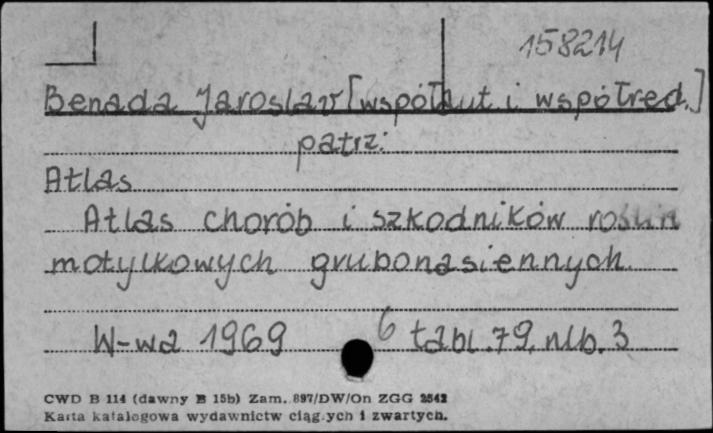 158214
Benada Jaroslav [współaut. i współred.]
patrz:
Atlas
Atlas chorób i szkodników roślin
motylkowych grubonasiennych.
W-wa 1969 6 tabl. 79, nlb. 3
CWD B 114 (dawny B 15b) Zam. 897/DW/On ZGG 2542
Karta katalogowa wydawnictw ciągłych i zwartych.